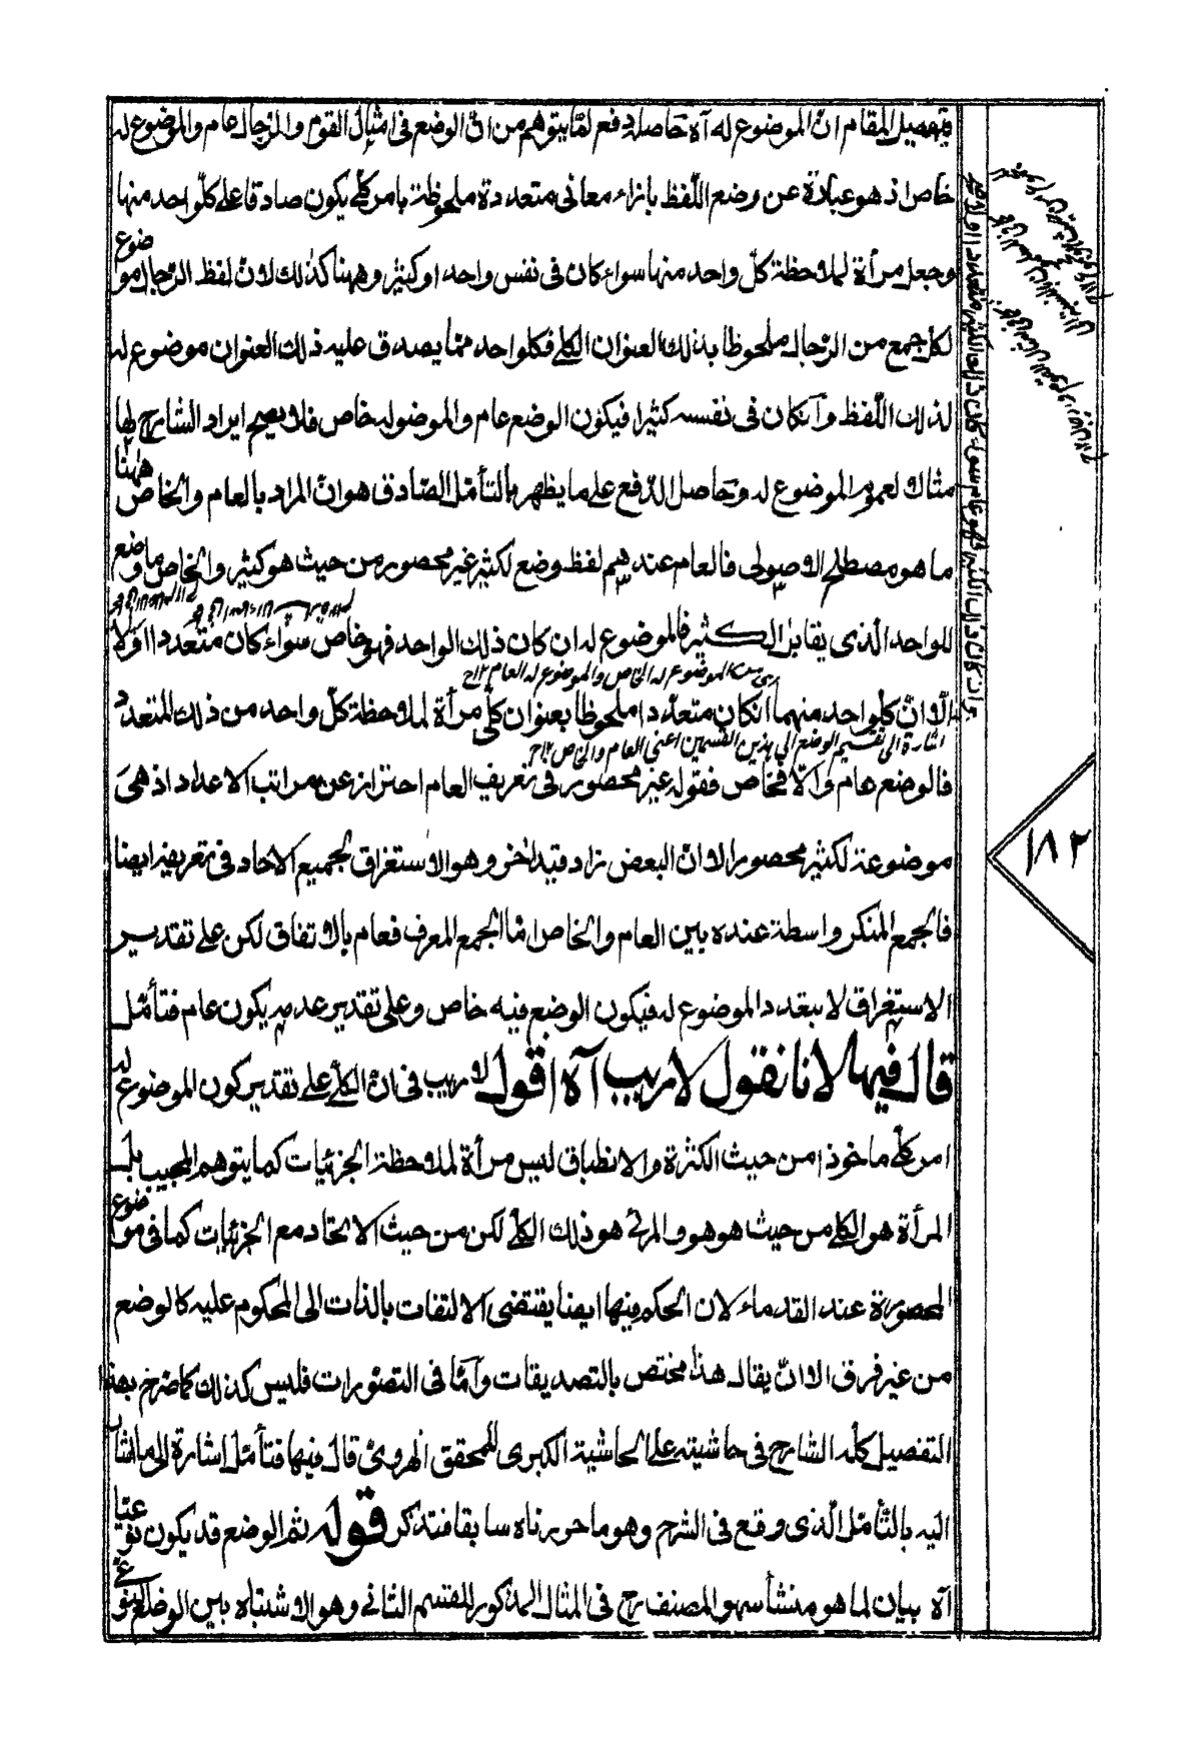 وتفصيل المقام ان الموضوع له آه حاصله دفع لما يتوهم من ان الوضع فى امثال القوم والرجال عام والموضوع له
خاص اذ هو عبارة عن وضع اللفظ بازاء معانى متعددة ملحوظة بامر كلى يكون صادقا على كل واحد منها
وجعل مرأة لملاحظة كل واحد منها سواء كان فى نفس واحد او كثير وههنا كذلك لان لفظ الرجال موضوع
لكل جمع من الرجال ملحوظا بذلك العنوان الكلى فكلواحد مما يصدق عليه ذلك العنوان موضوع له
لذلك اللفظ وانكان فى نفسه كثيرا فيكون الوضع عام والموضوله خاص فلا يصح ايراد الشارح لها
مثالا لعموم الموضوع له وحاصل الدفع على ما يظهر بالتأمل الصادق هو ان المراد بالعام والخاص ههنا
ما هو مصطلح الاصولى فالعام عندهم لفظ وضع لكثير غير محصور من حيث هو كثير والخاص ما وضع
للواحد الذى يقابل الكثير فالموضوع له ان كان ذلك الواحد فهو خاص سواء كان متعددا اولا
اى من الموضوع له الخاص والموضوع له العام ١٢ ح
الا ان كلواحد منهما انكان متعددا ملحوظا بعنوان كلى مرأة لملاحظة كل واحد من ذلك المتعدد
اشارة الى تقسيم الوضع الى هذين القسمين اعنى العام والخاص ١٢ ح
فالوضع عام والا فخاص فقوله غير محصور فى تعريف العام احتراز عن مراتب الاعداد اذ هى
موضوعة لكثير محصور الا ان البعض زاد قيدا اخر وهو الاستغراق لجميع الاحاد فى تعريفه ايضا
فالجمع المنكر واسطة عنده بين العام والخاص اما الجمع المعرف فعام بالاتفاق لكن على تقدير
الاستغراق لا يتعدد الموضوع له فيكون الوضع فيه خاص وعلى تقدير عدمه يكون عام فتأمل
قال فيها لانا نقول لا ريب آه اقول لا ريب فى ان الكلى على تقدير كون الموضوع له
امر كلى ماخوذا من حيث الكثرة والانطباق ليس مرأة لملاحظة الجزئيات كما يتوهم المجيب بل
المرأة هو الكلى من حيث هو هو والمرئى هو ذلك الكلى لكن من حيث الاتحاد مع الجزئيات كما فى موضوع
المحصورة عند القدماء لان الحكم فيها ايضا يقتضى الالتفات بالذات الى المحكوم عليه كالوضع
من غير فرق الا ان يقال هذا مختص بالتصديقات واما فى التصورات فليس كذلك كما صرح بهذا
التفصيل كله الشارح فى حاشيته على الحاشية الكبرى للمحقق الهروى قال فيها فتأمل اشارة الى ما اشار
اليه بالتأمل الذى وقع فى الشرح وهو ما حررناه سابقا فتذكر قوله ثم الوضع قد يكون نوعيا
آه بيان لما هو منشأ سهو المصنف رح فى المثال المذكور للقسم الثانى وهو الاشتباه بين الوضع النوعى
١٨٢